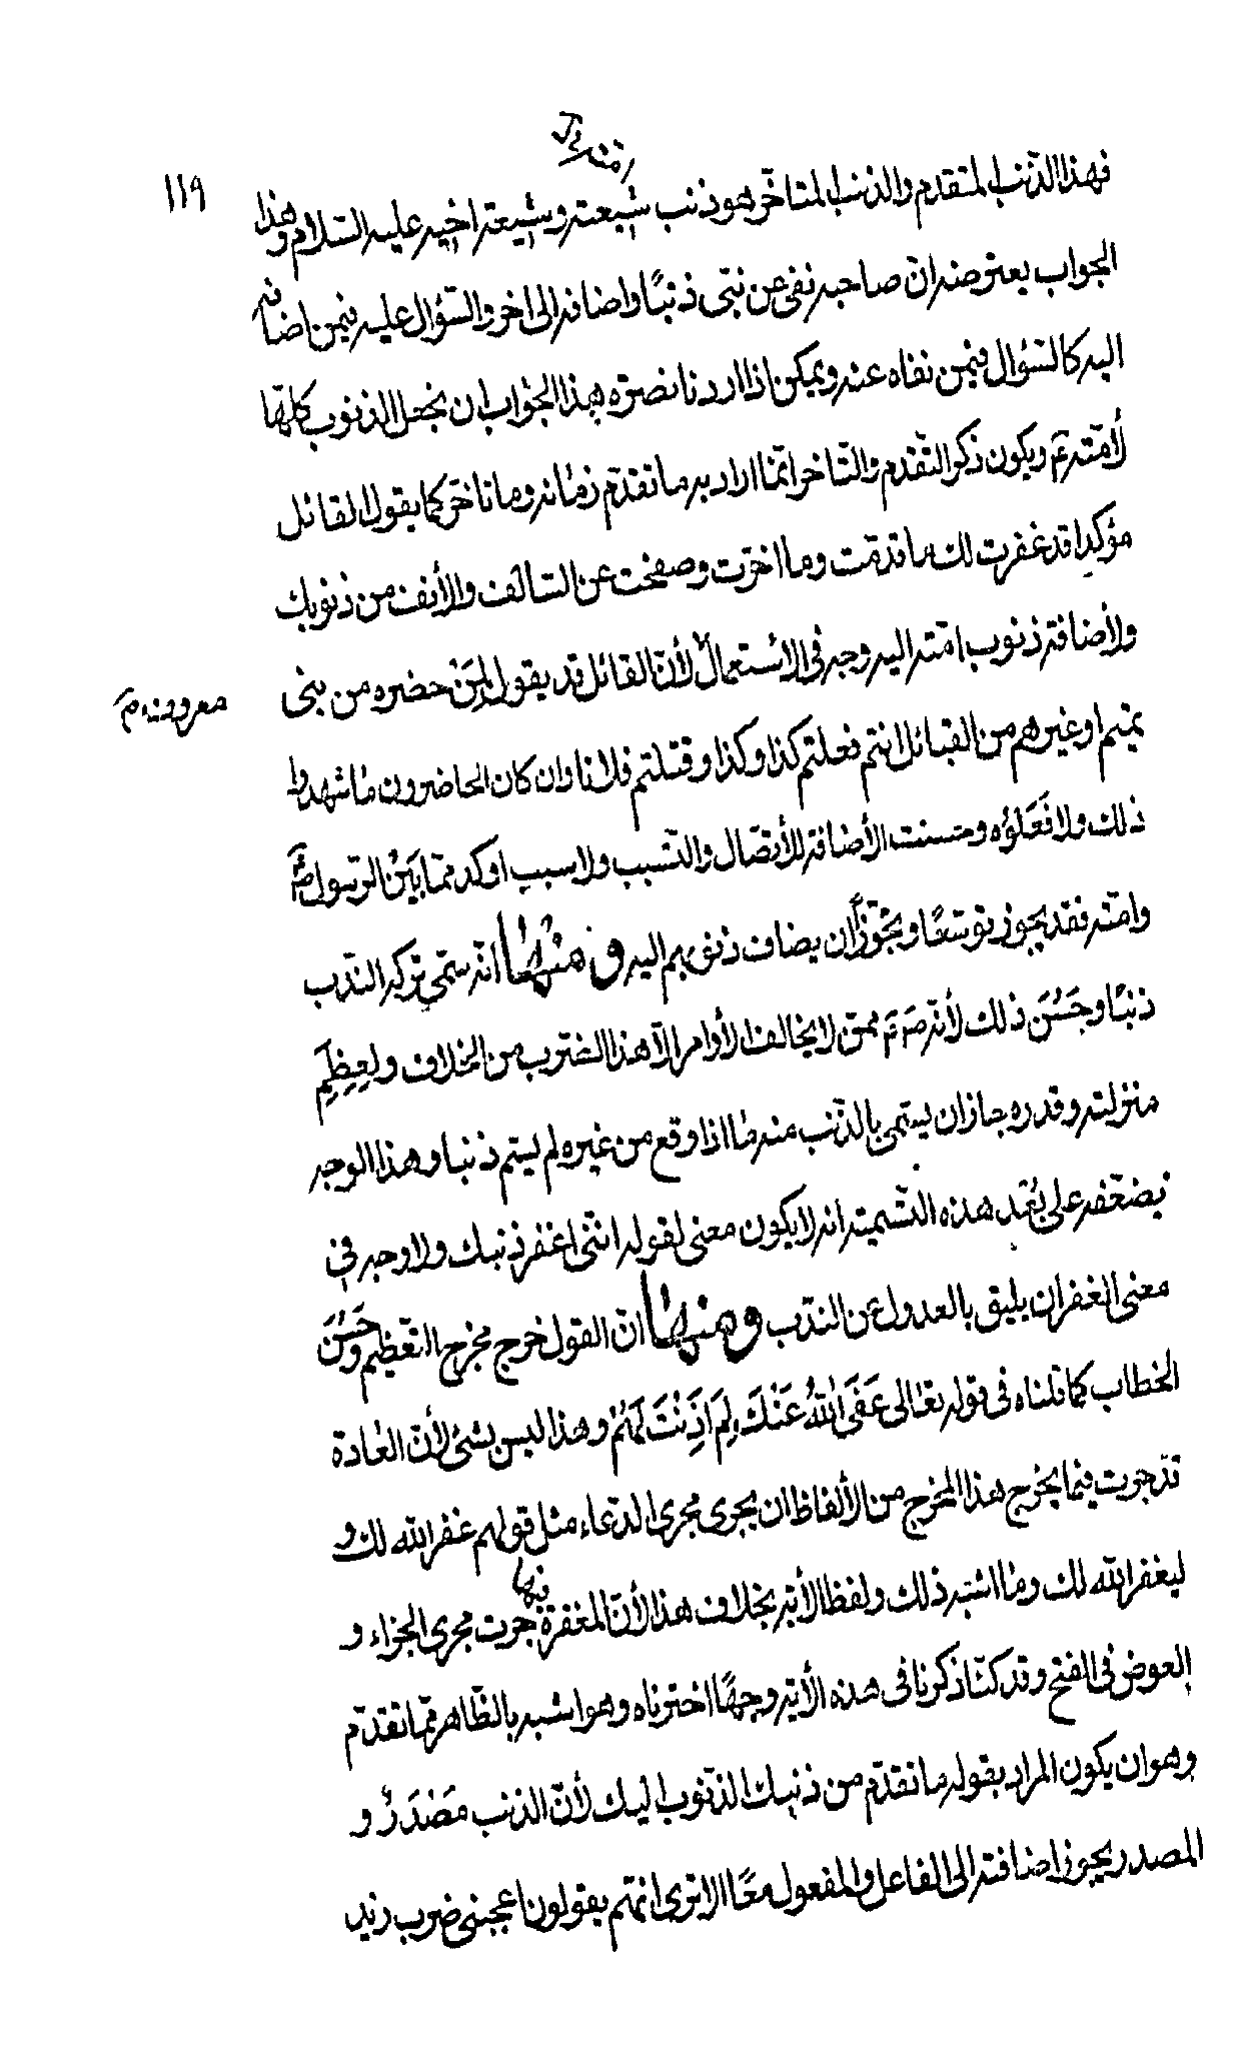 ١١٩
فهذا الذنب المتقدم والذنب المتاخر هو ذنب شيعته وشيعة اخيه عليه السّلام وهذا
الجواب يعترضه ان صاحبه نفى عن نبّى ذنبًا واضافه الى اخر والسّؤال عليه فيمن اضافه
اليه كالسّؤال فيمن نفاه عنه ويمكن اذا اردنا نصرة هذا الجواب ان نجعل الذنوب كلّها
لأمّته ع ويكون ذكر التّقدم والتّاخر انّما اراد به ما تقدّم زمانه وما تاخّر كما يقول القائل
مؤكدا قد غفرت لك ما قدمت وما اخرّت وصفحت عن السّالف والأنف من ذنوبك
ولأضافة ذنوب امّته اليه وجه فى الاستعمال لأنّ القائل قد يقول لِمَنْ حضره من بنى
تميم او غيرهم من القبائل انتم فعلتم كذا وكذا وقتلتم فلانا وان كان الحاضرون ما شهدوا
ذلك ولا فَعَلوُه وحسنت الأضافة للأتصّال والتّسبب ولا سبب اوكد ممّا بَيْنَ الرّسول ص
وامّته فقد يجوز توسّعًا وتجوّزًا ان يضاف ذنوبهم اليه ومنها انّه سمّى تركه النّدب
ذنبًا وحَسُنَ ذلك لأنّه ص ع ممن لا يخالف الأوامر الّا هذا الضّرب من الخلاف ولعِظَمِ
منزلته وقدره جاز ان يسمّى بالذّنب منه ما اذا وقع من غيره لم يسّم ذنبا وهذا الوجه
يضعّفه على بُعْد هذه التّسمية انه لا يكون معنى لقوله انّنى اغفر ذنبك ولا وجه فى
معنى الغفران يليق بالعدول عن النّدب ومنها انّ القول خرج مخرج التّعظيم وحُسْنَ
الخطاب كما قلناه فى قوله تعالى عَفَى اللهُ عَنْكَ لِمَ اَذِنْتَ لَهُمْ وهذا ليس بشئ لأنّ العادة
قد جرت فيما يخرج هذا المخرج من الألفاظ ان يجرى مجرى الدّعاء مثل قولهم غفر الله لك و
ليغفر الله لك وما اشبه ذلك ولفظ الأية بخلاف هذا لأنّ المغفرة فيها جرت مجرى الجزاء و
العوض فى الفتح وقد كنّا ذكرنا فى هذه الأية وجهًا اخترناه وهو اشبه بالظّاهر ممّا تقدّم
وهو ان يكون المراد بقوله ما تقدّم من ذنبك الذّنوب اليك لأنّ الذنب مَصْدَرٌ و
المصدر يجوز اضافته الى الفاعل والمفعول معًا الا ترى انّهم يقولون اعجبنى ضرب زيد